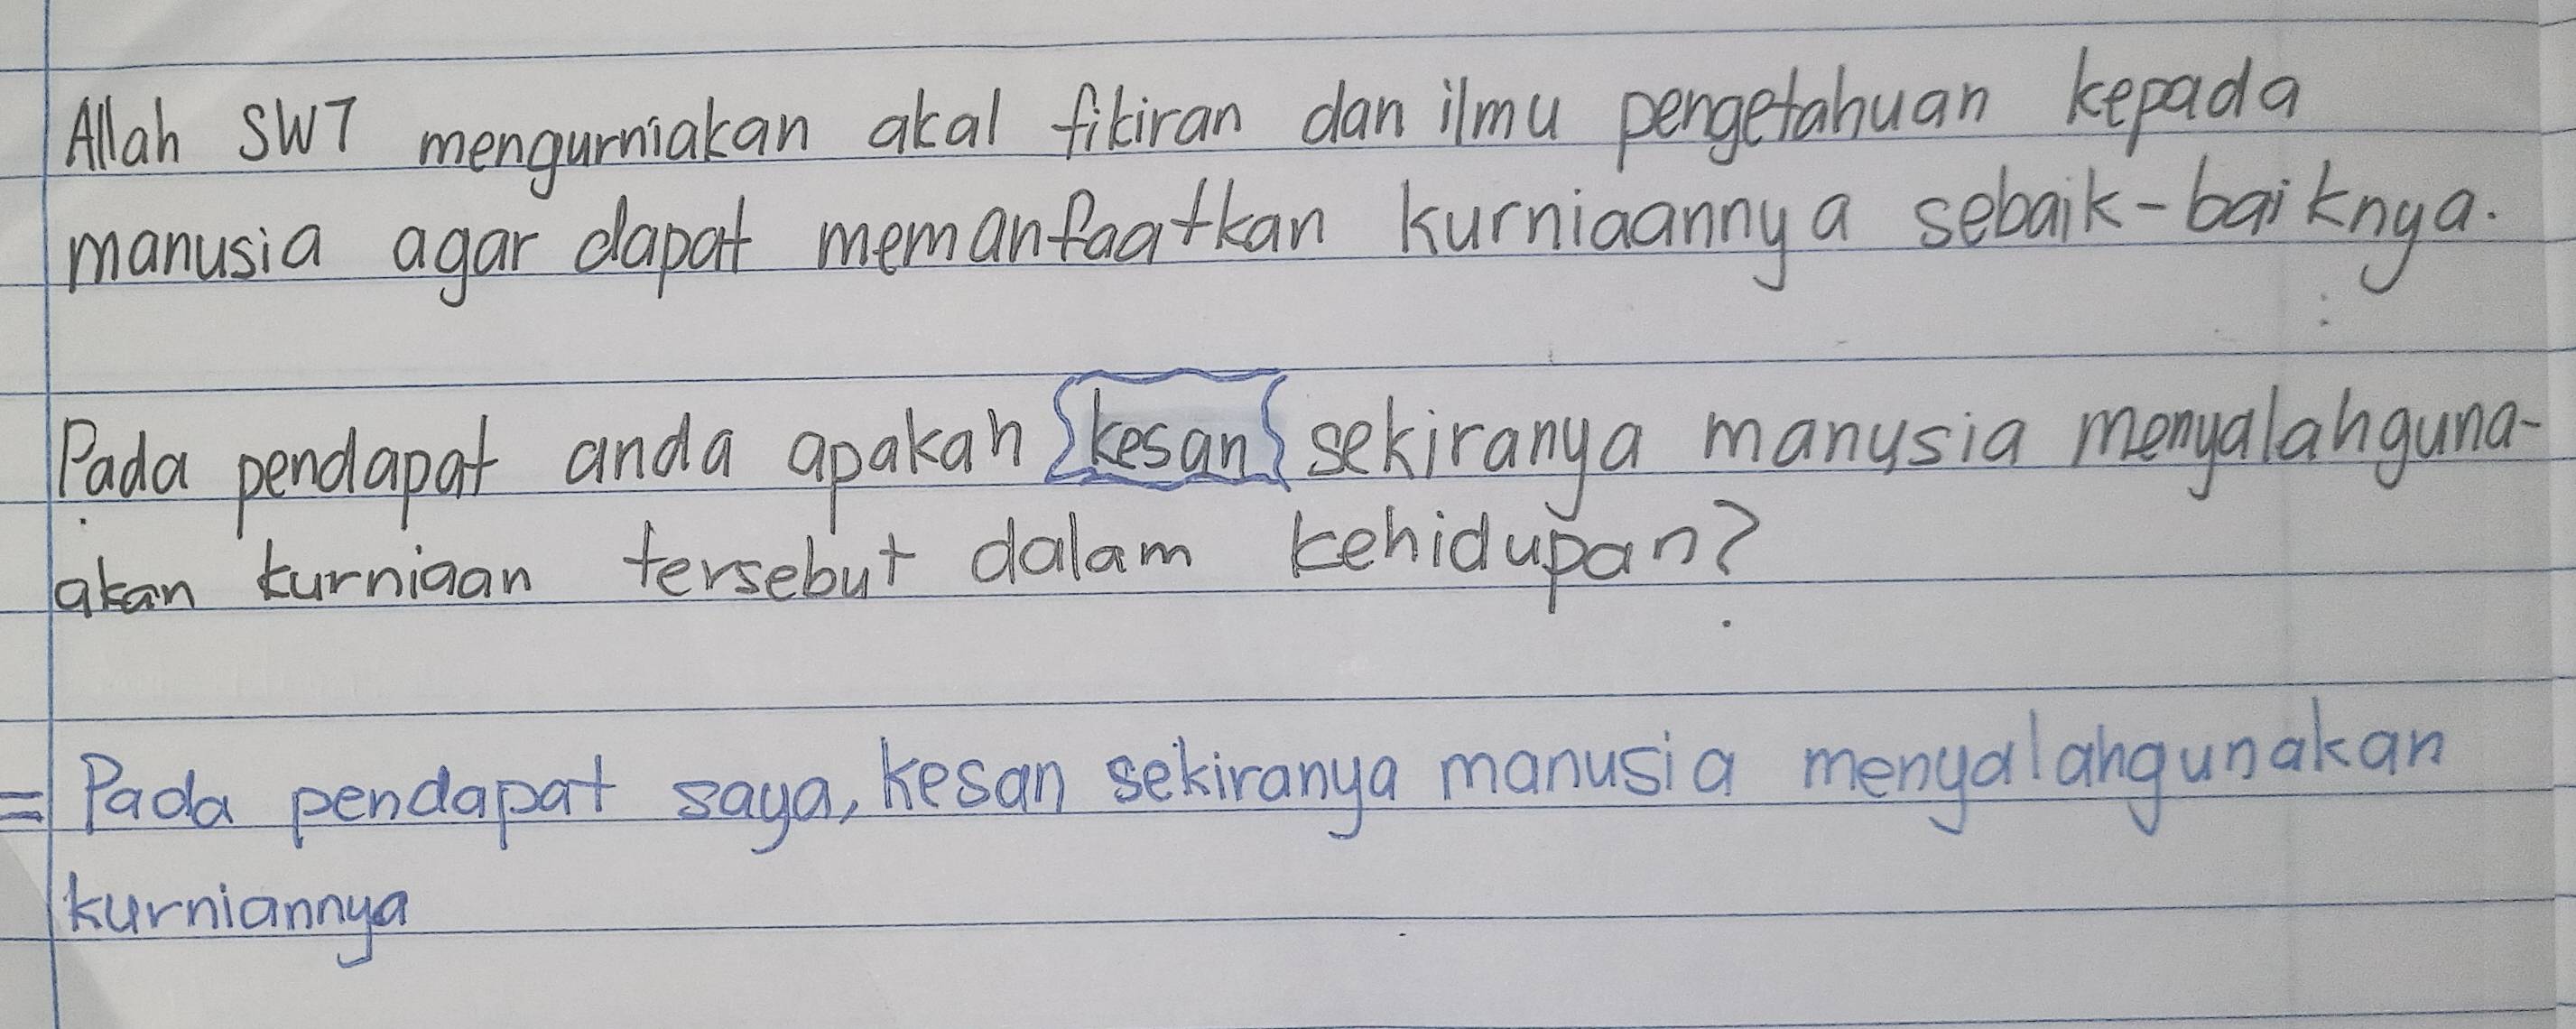 Allah SWT mengurniakan akal fikiran dan ilmu pengetahuan kepada
manusia agar dapat memanfaatkan kurniaannya sebaik-baiknya.
Pada pendapat anda apakah kesan sekiranya manusia menyalahguna-
akan kurniaan tersebut dalam kehidupan?
= Pada pendapat saya, kesan sekiranya manusia menyalahgunakan
kurniannya